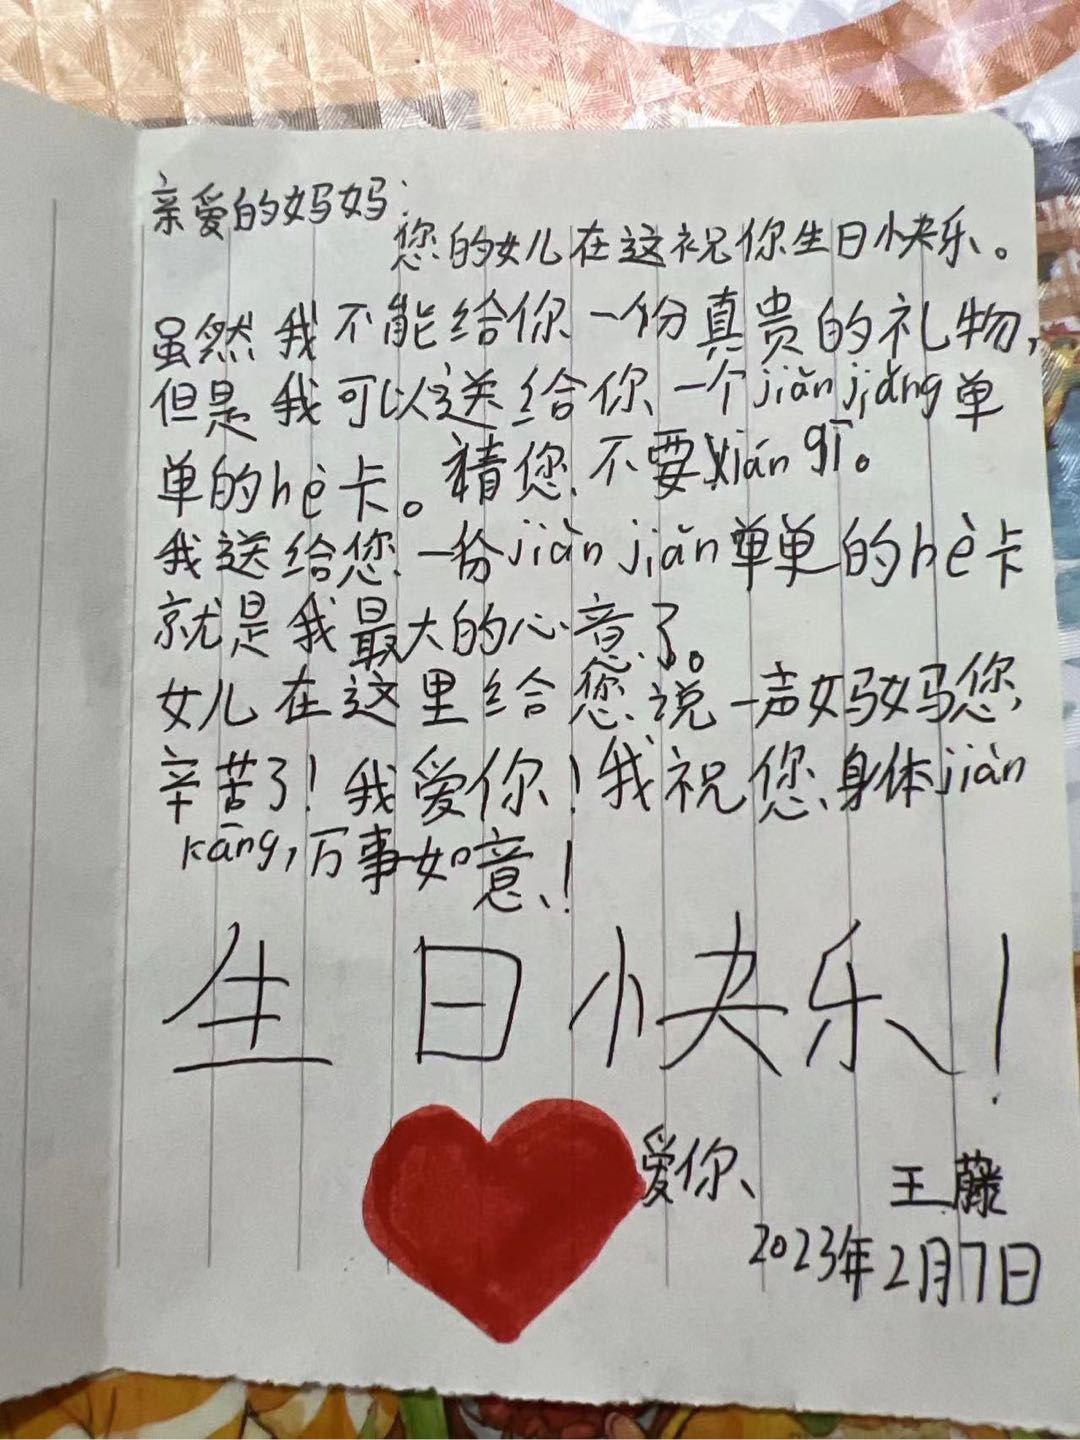 亲爱的妈妈：
您的女儿在这祝你生日快乐。
虽然我不能给你一份真贵的礼物，
但是我可以送给你一个jiǎnjiǎng单
单的hè卡。精您不要xiánqī。
我送给您一份jiǎnjiǎn单单的hè卡
就是我最大的心意了。
女儿在这里给您说一声妈妈您，
辛苦了！我爱你！我祝您身体jiàn
kāng，万事如意！
生日快乐！
爱你 王藤
2023年2月7日